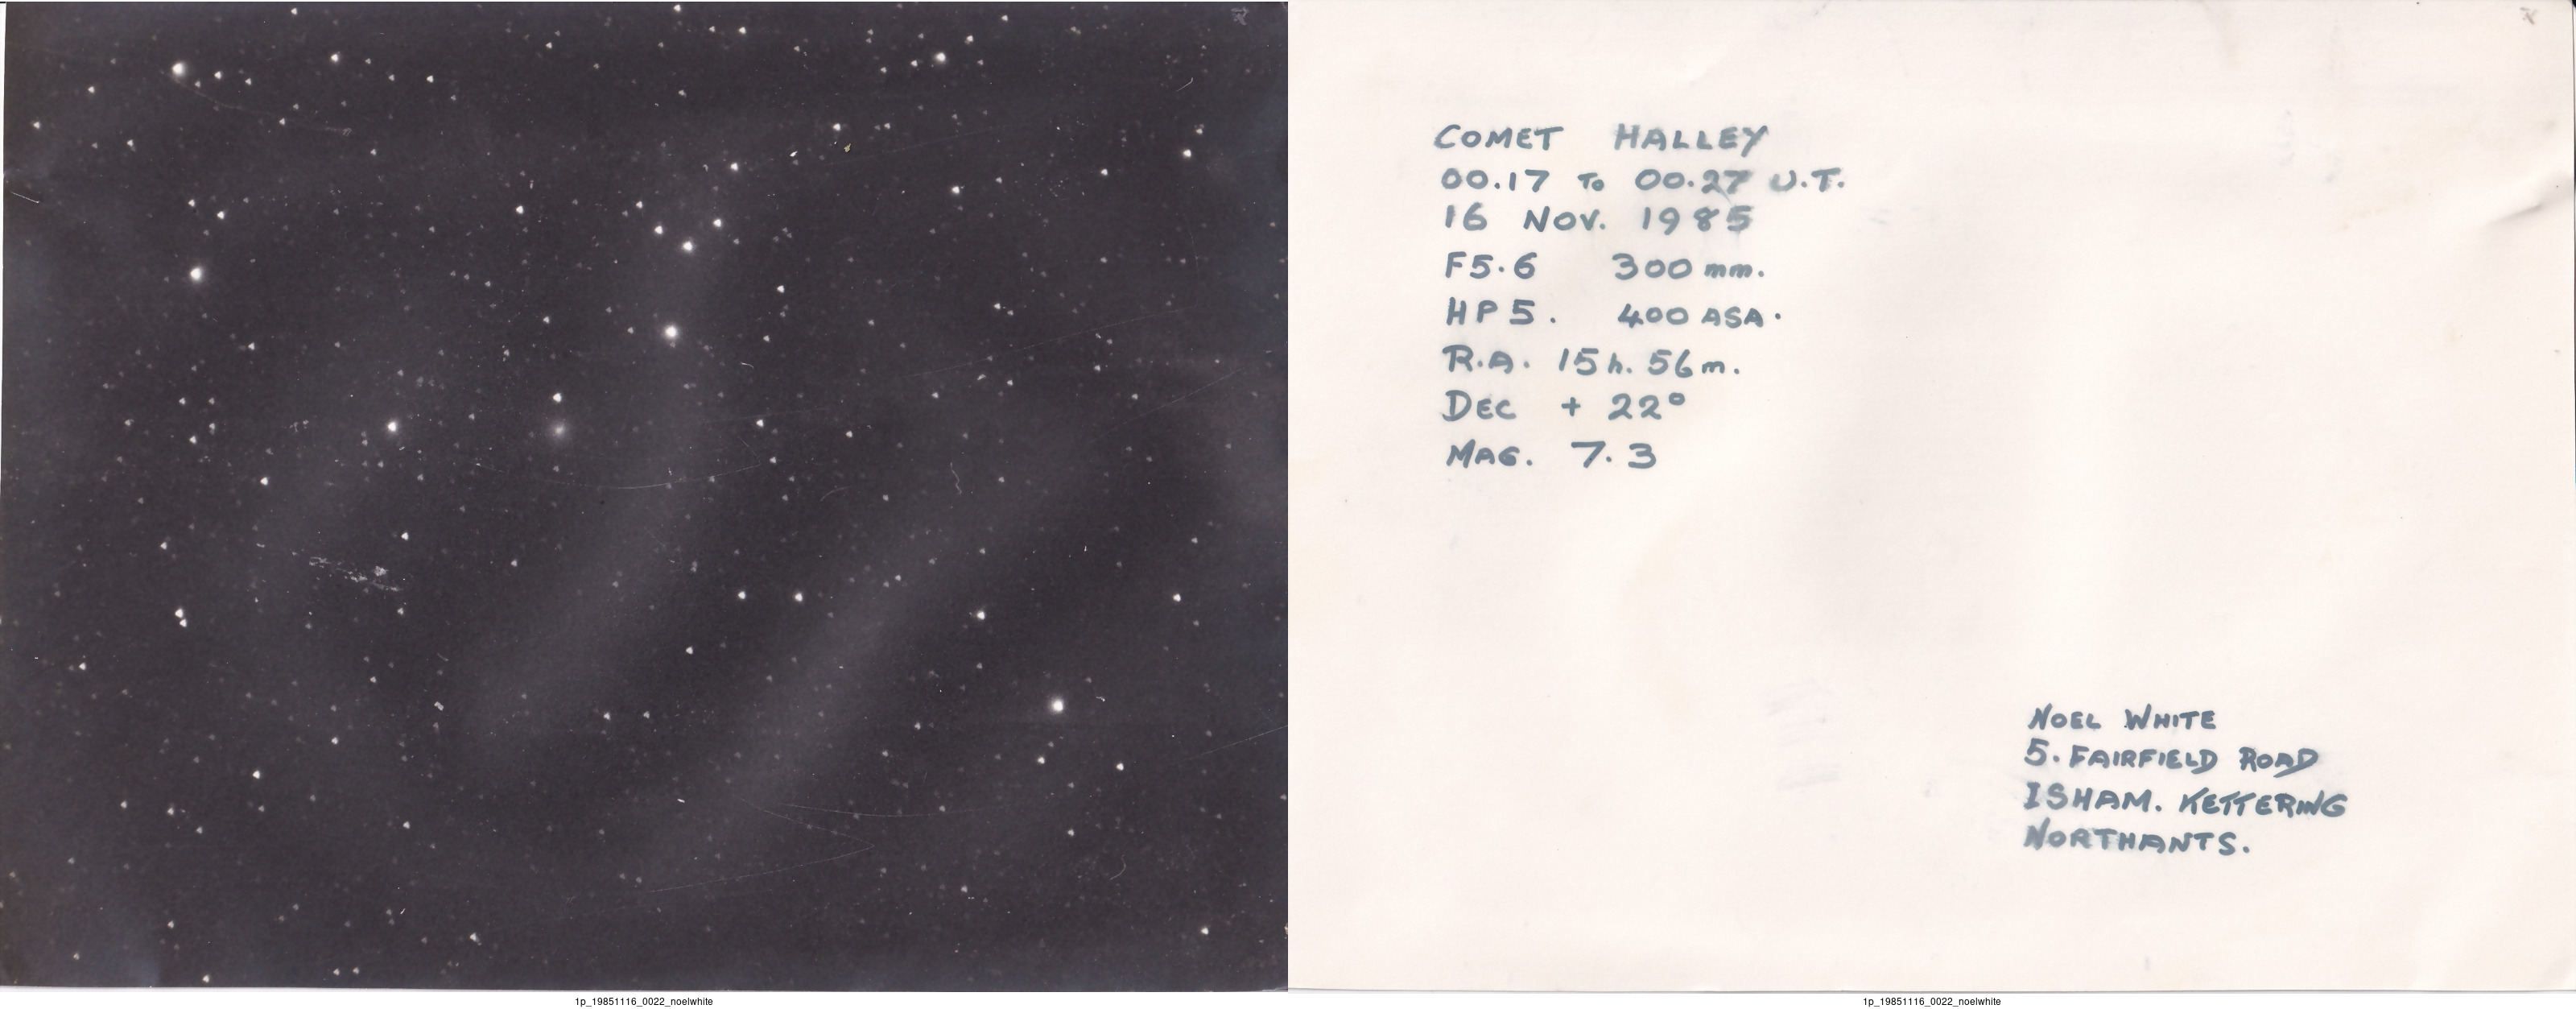 COMET HALLEY
00.17 TO 00.27 U.T.
16 NOV. 1985
F5.6 300 mm.
HP5. 400 ASA.
R.A. 15h. 56m.
DEC + 22°
MAG. 7.3
NOEL WHITE
5. FAIRFIELD ROAD
ISHAM. KETTERING
NORTHANTS.
1p_19851116_0022_noelwhite
1p_19851116_0022_noelwhite